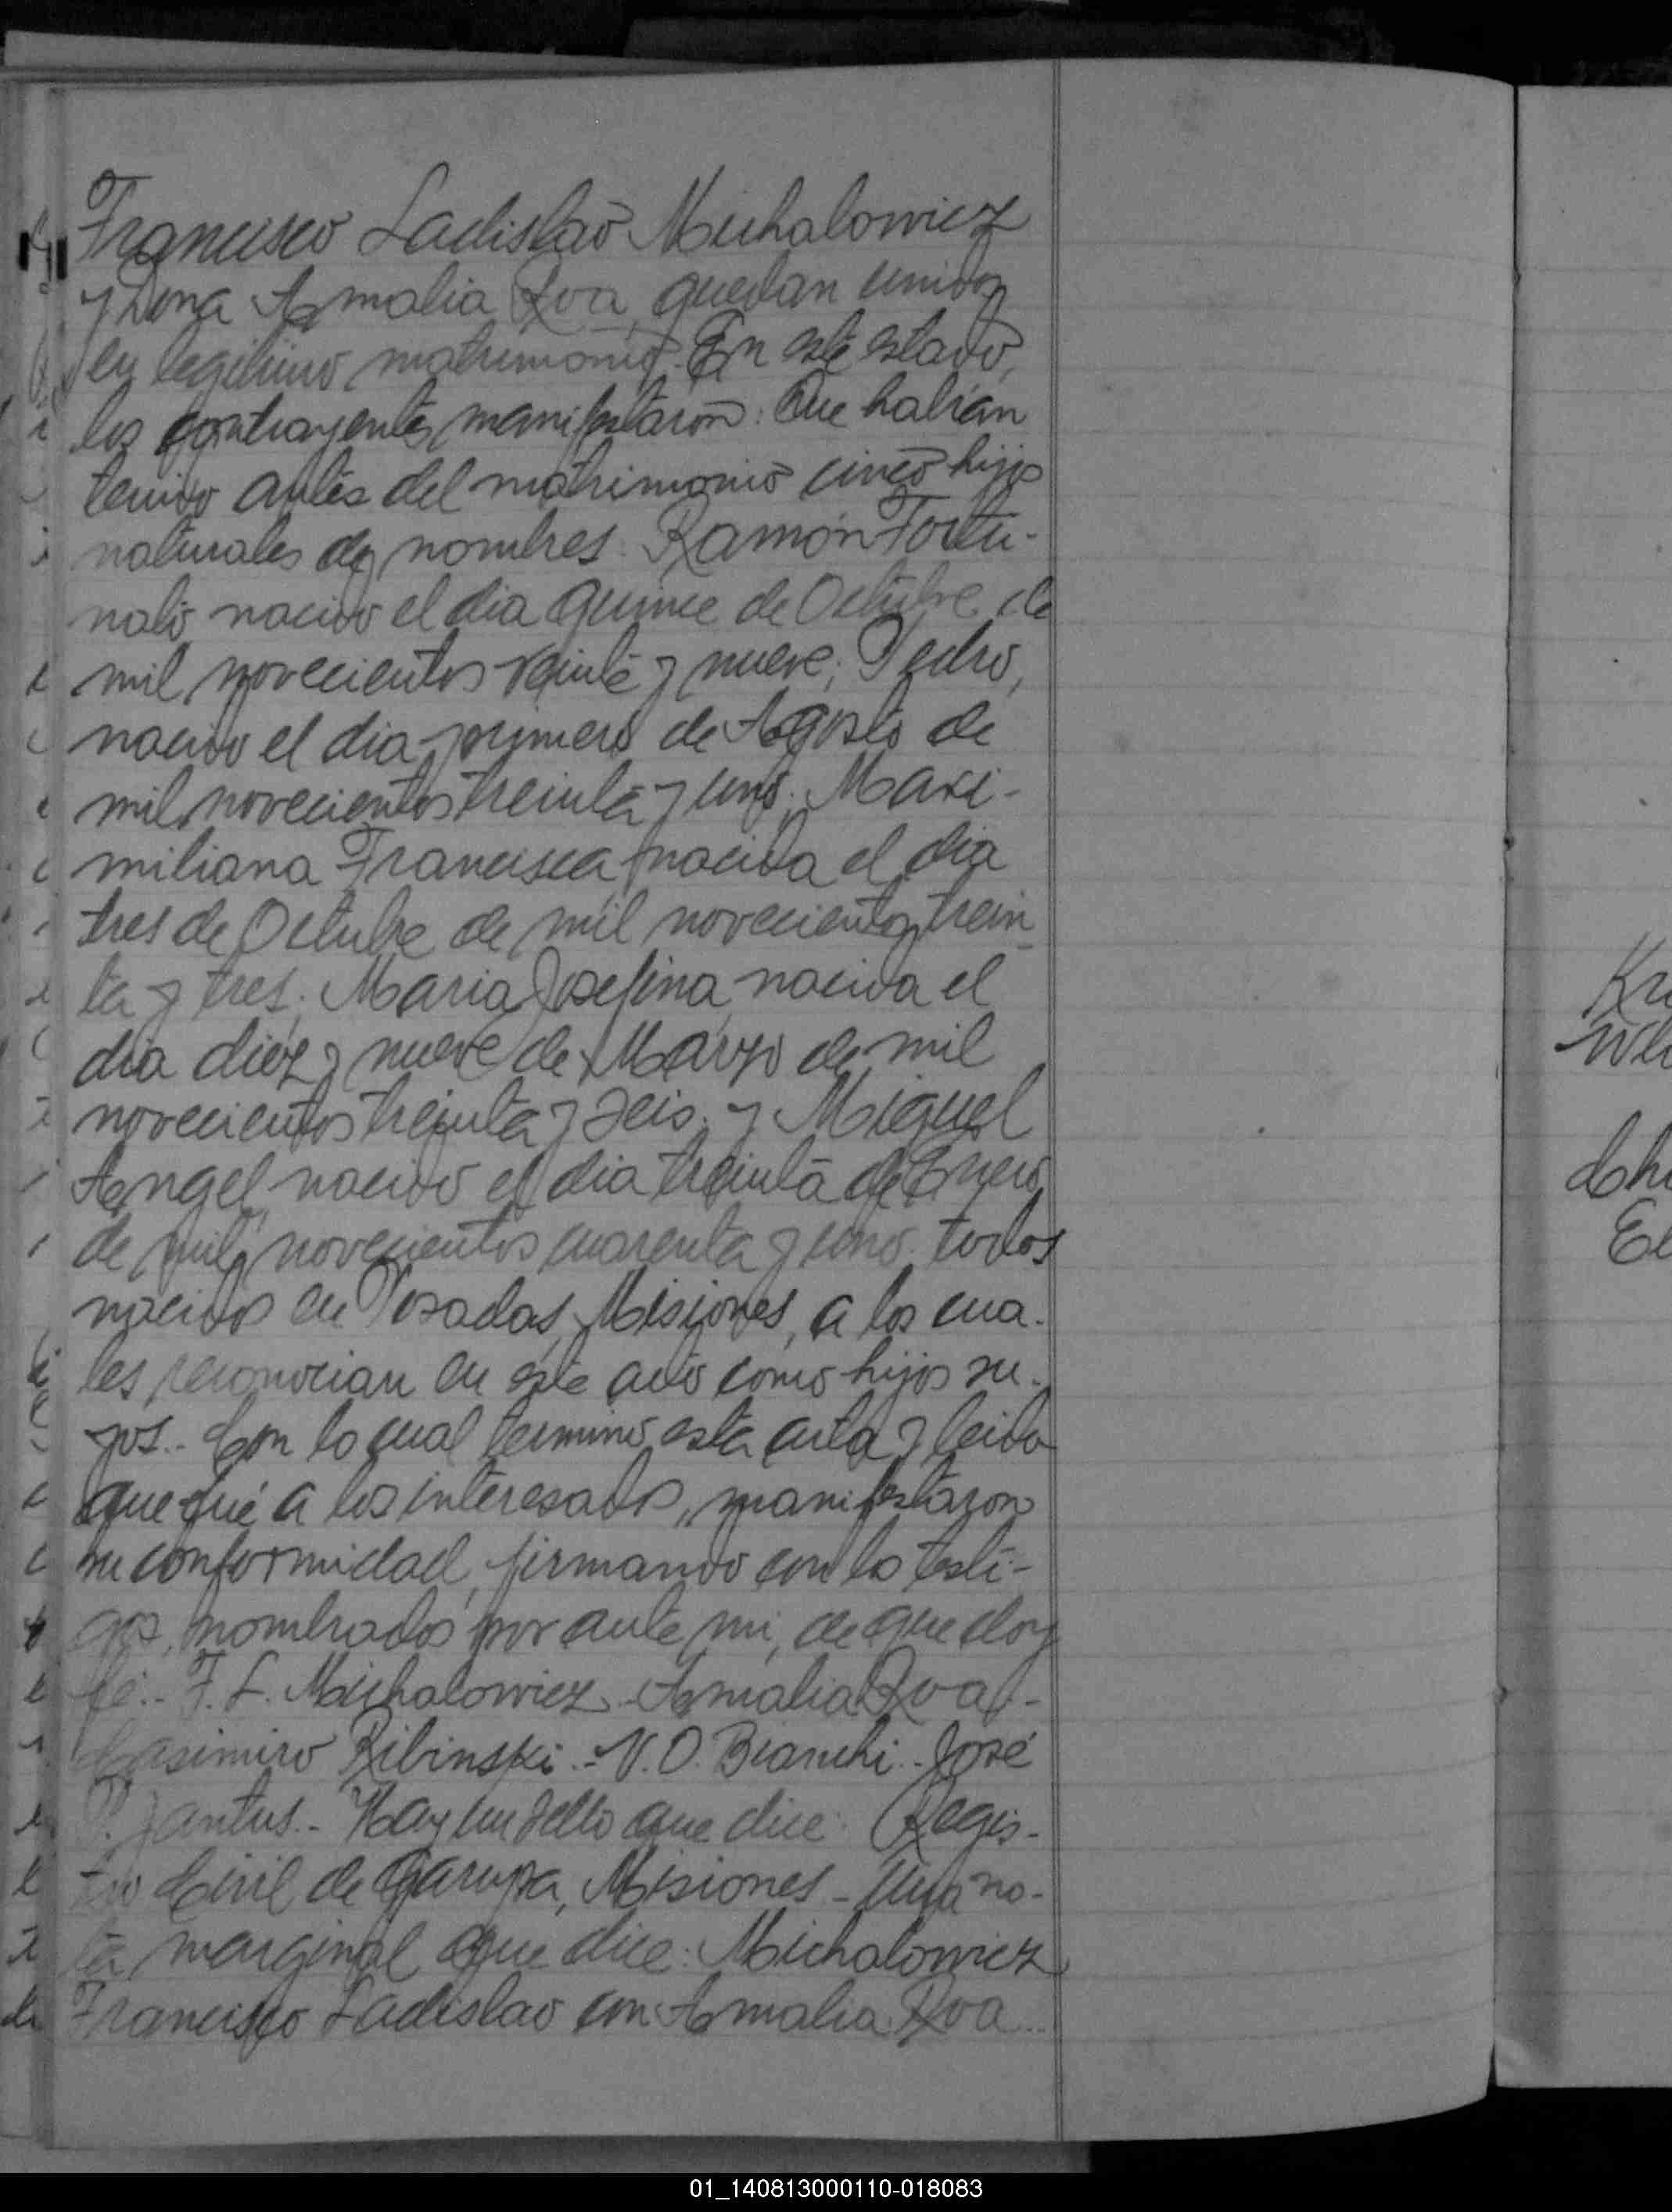 Francisco Ladislao Michalowicz
y Doña Amalia Roa, quedan unidos
en legitimo matrimonio. En este estado,
los contrayentes manifestaron: Que habían
tenido antes del matrimonio cinco hijos
naturales de nombres: Ramón Fortu-
nato nacido el dia quince de Octubre de
mil novecientos veinte y nueve; Pedro,
nacido el dia primero de Agosto de
mil novecientos treinta y uno; Maxi-
miliana Francisca, nacida el dia
tres de Octubre de mil novecientos trein-
ta y tres; Maria Josefina, nacida el
dia diez y nueve de Marzo de mil
novecientos treinta y seis; y Miguel
Angel, nacido el dia treinta de Enero
de mil novecientos cuarenta y uno. todos
nacidos en Posadas, Misiones, a los cua-
les reconocian en este acto como hijos su-
yos.- Con lo cual termino esta acta y leida
que fué a los interesados, manifestaron
su conformidad, firmando con los testi-
gos, nombrados por ante mi, de que doy
fé.- F. L. Michalowicz.- Amalia Roa.-
Casimiro Ribinski.- V. O. Bianchi.- José
P. Jantus.- Hay un sello que dice: Regis-
tro Civil de Garupa, Misiones - Una no-
ta marginal que dice: Michalowicz
Francisco Ladislao con Amalia Roa..
01_140813000110-018083